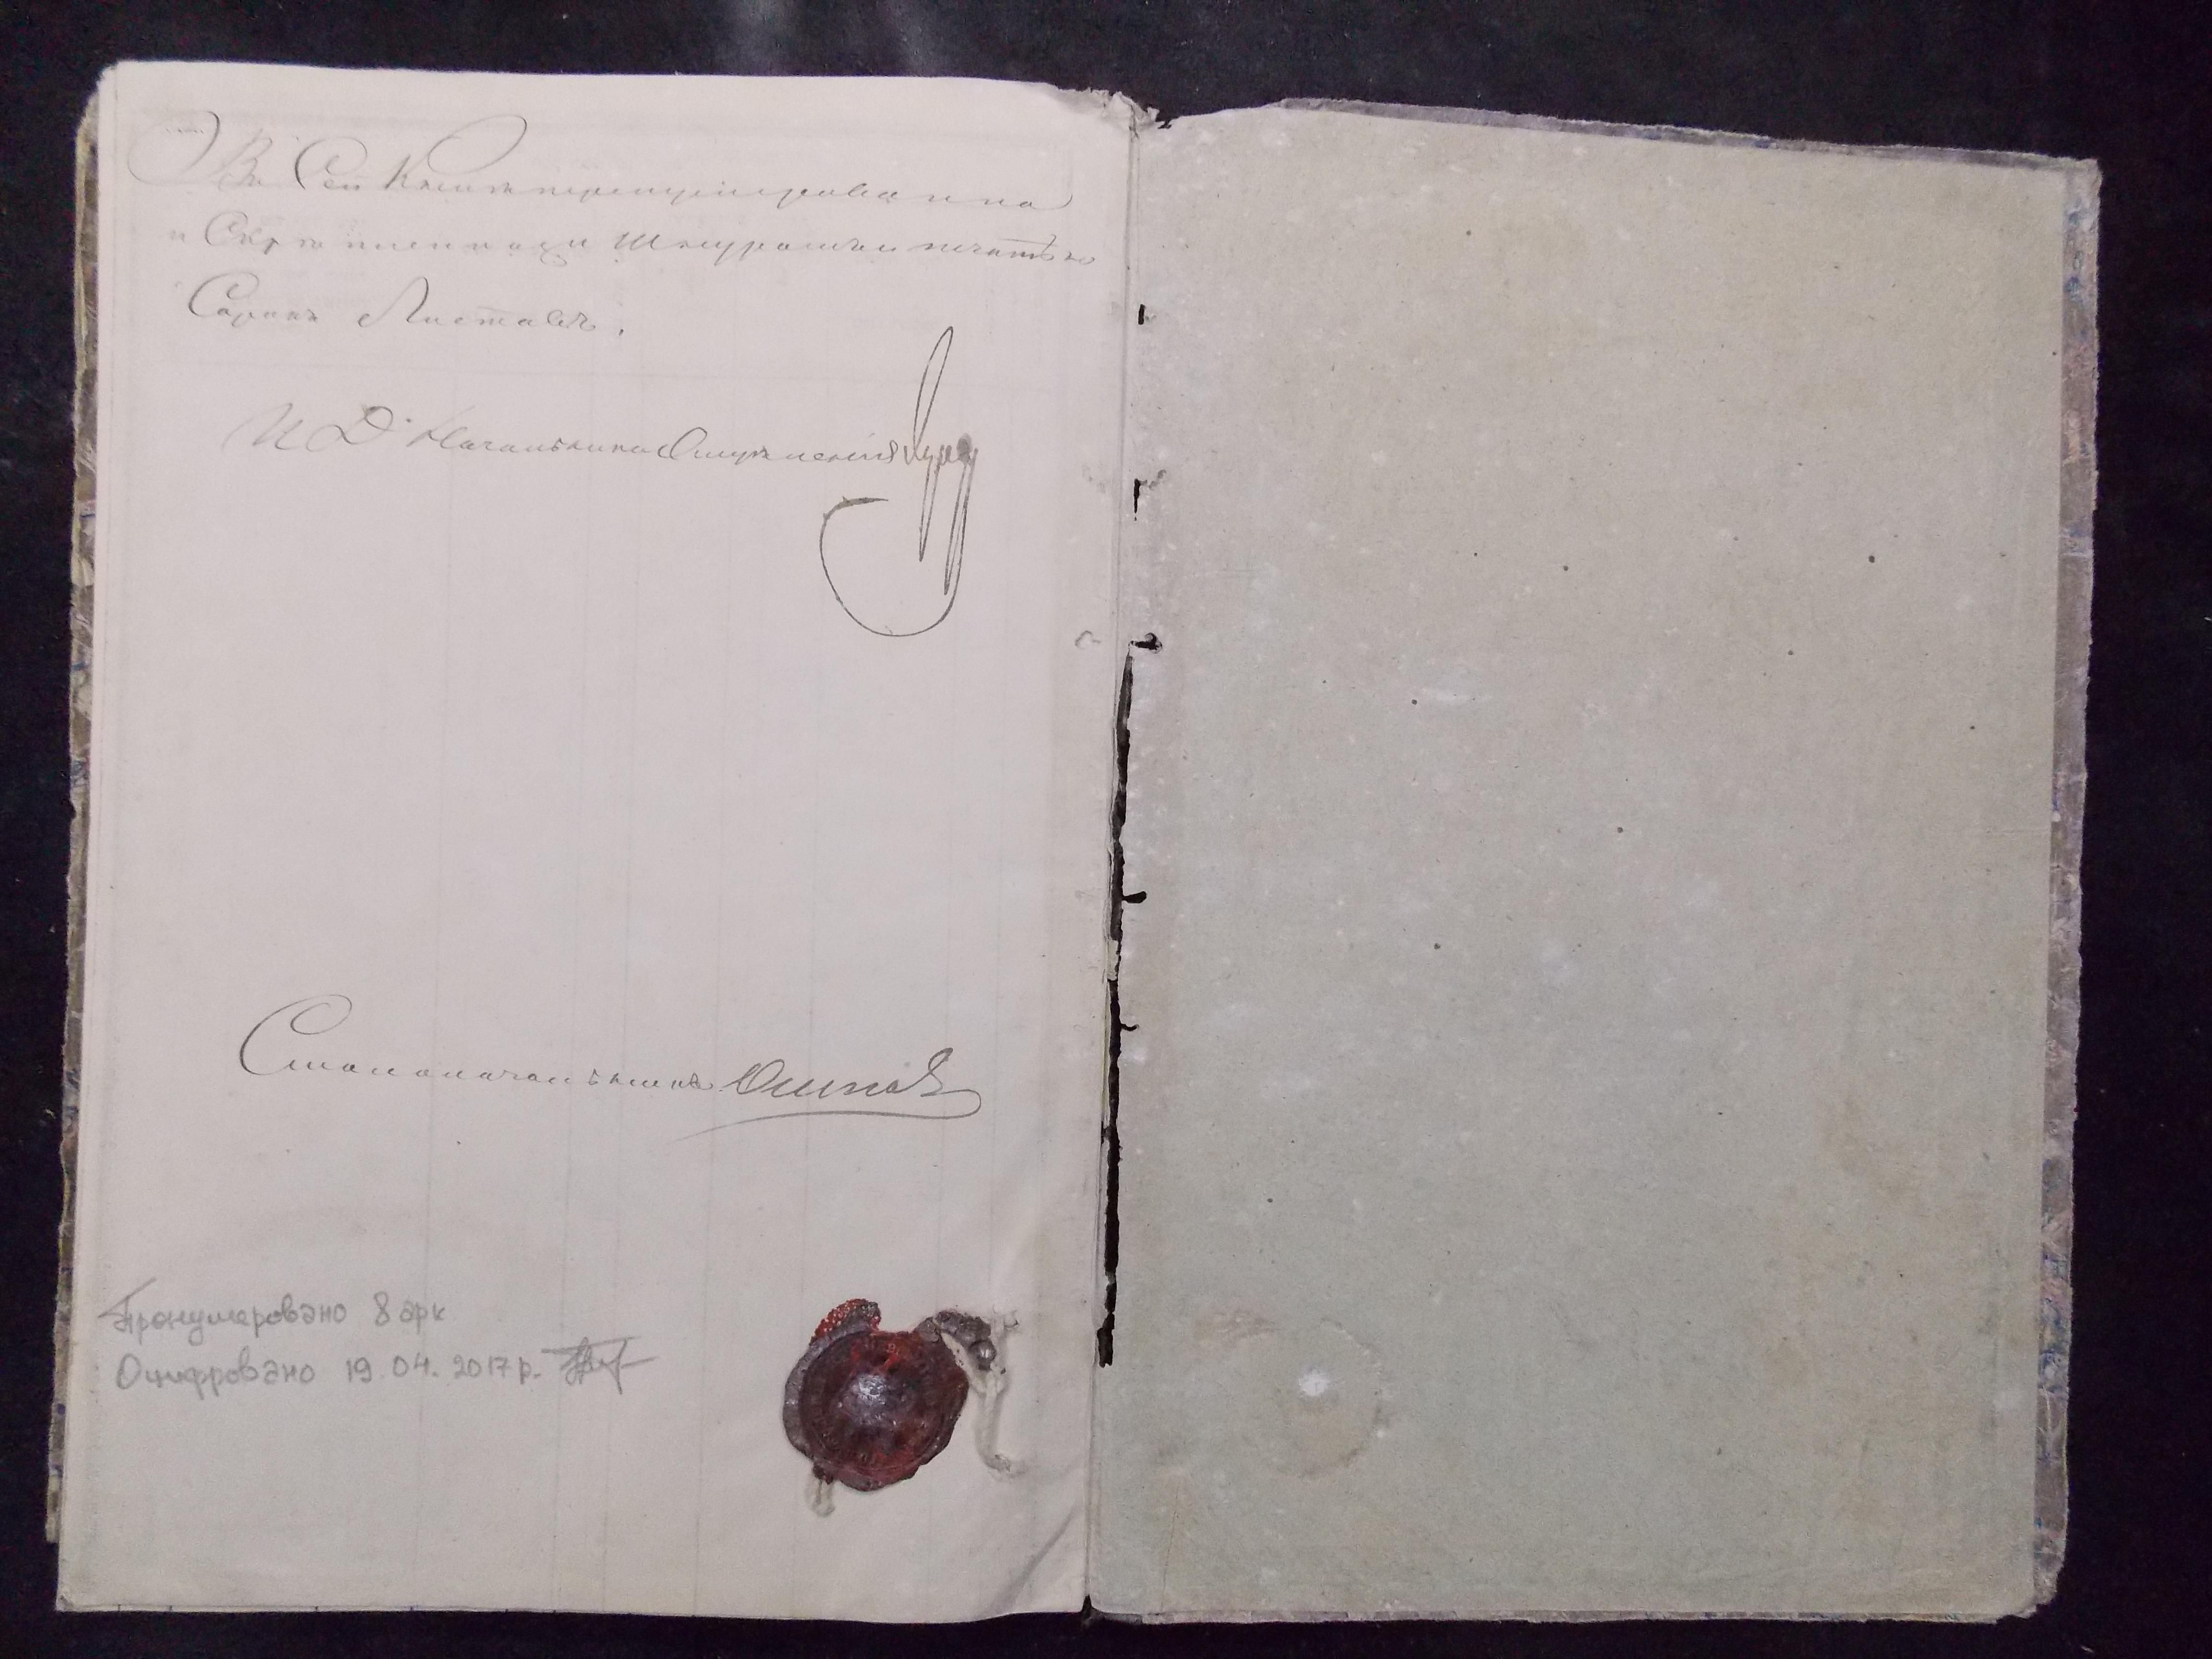 Въ Сей Книгѣ перенумерованно
и Скрѣпленной Шнуромъ и печатью
Сорокъ Листовъ.
И Д Начальника Отдѣленія
Столоначальникъ
Пронумеровано 8 арк
Оцифровано 19.04.2017 р.